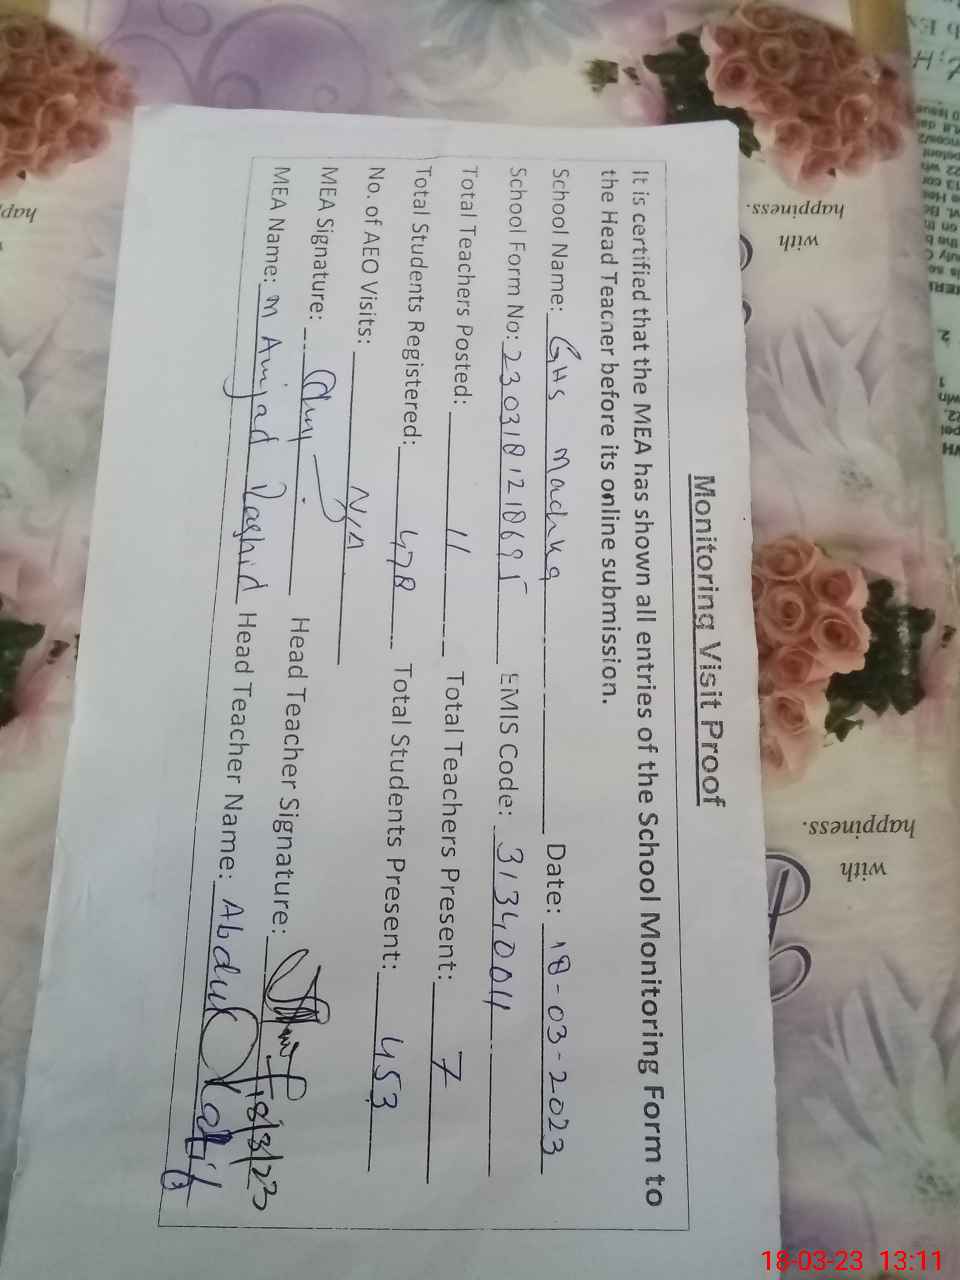 Monitoring Visit Proof
It is certified that the MEA has shown all entries of the School Monitoring Form to
the Head Teacher before its online submission.
School Name: GHS Machka Date: 18-03-2023
School Form No: 2303181218695 EMIS Code: 31340011
Total Teachers Posted: 11 Total Teachers Present: 7
Total Students Registered: 478 Total Students Present: 453
No. of AEO Visits: N/A
MEA Signature: Head Teacher Signature: 18/3/23
MEA Name: M Amjad Rashid Head Teacher Name: Abdul Latif
happiness.
with
happiness.
with
18-03-23 13:11